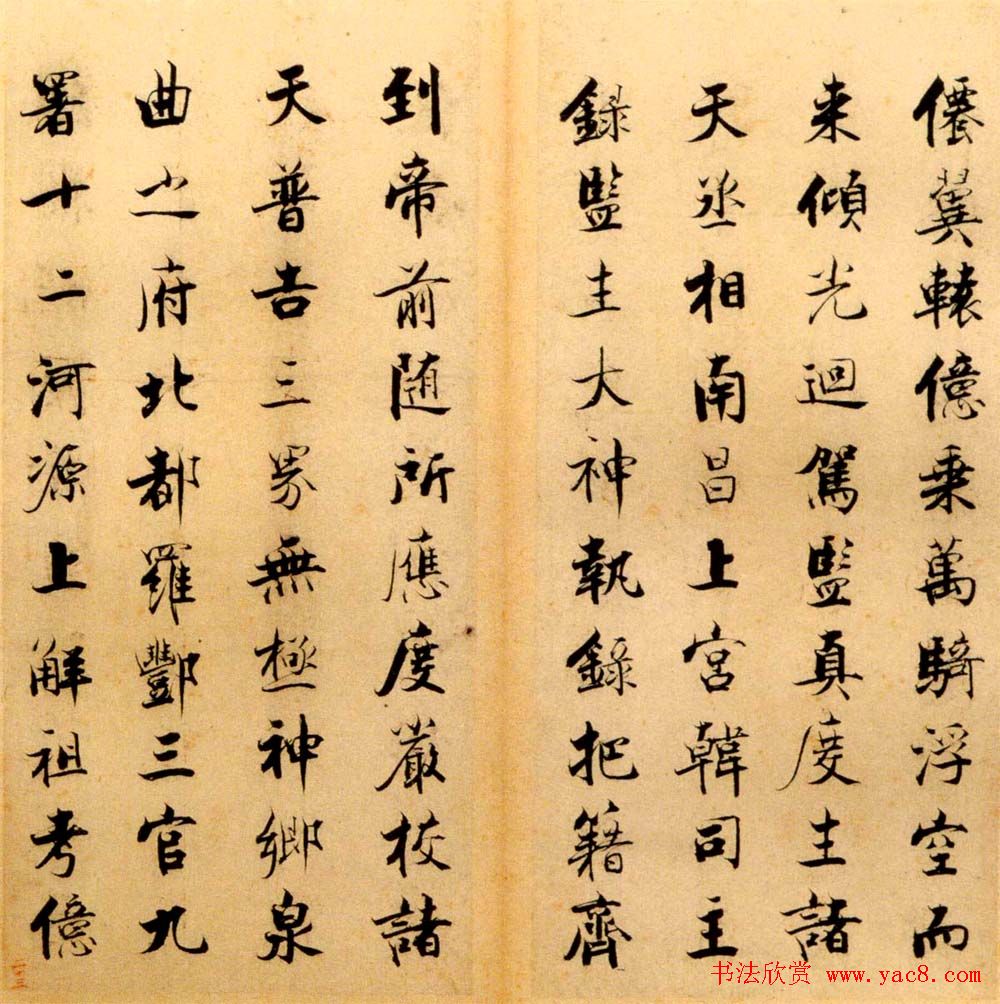 僊翼轅億乗萬騎浮空而
来傾光迴駕監真度生諸
天丞相南昌上宮韓司主
録監生大神執録把籍齊
到帝前随所應度嚴校諸
天普告三界無極神卿泉
曲之府北都羅酆三官九
署十二河源上解祖考億
书法欣赏 www.yac8.com